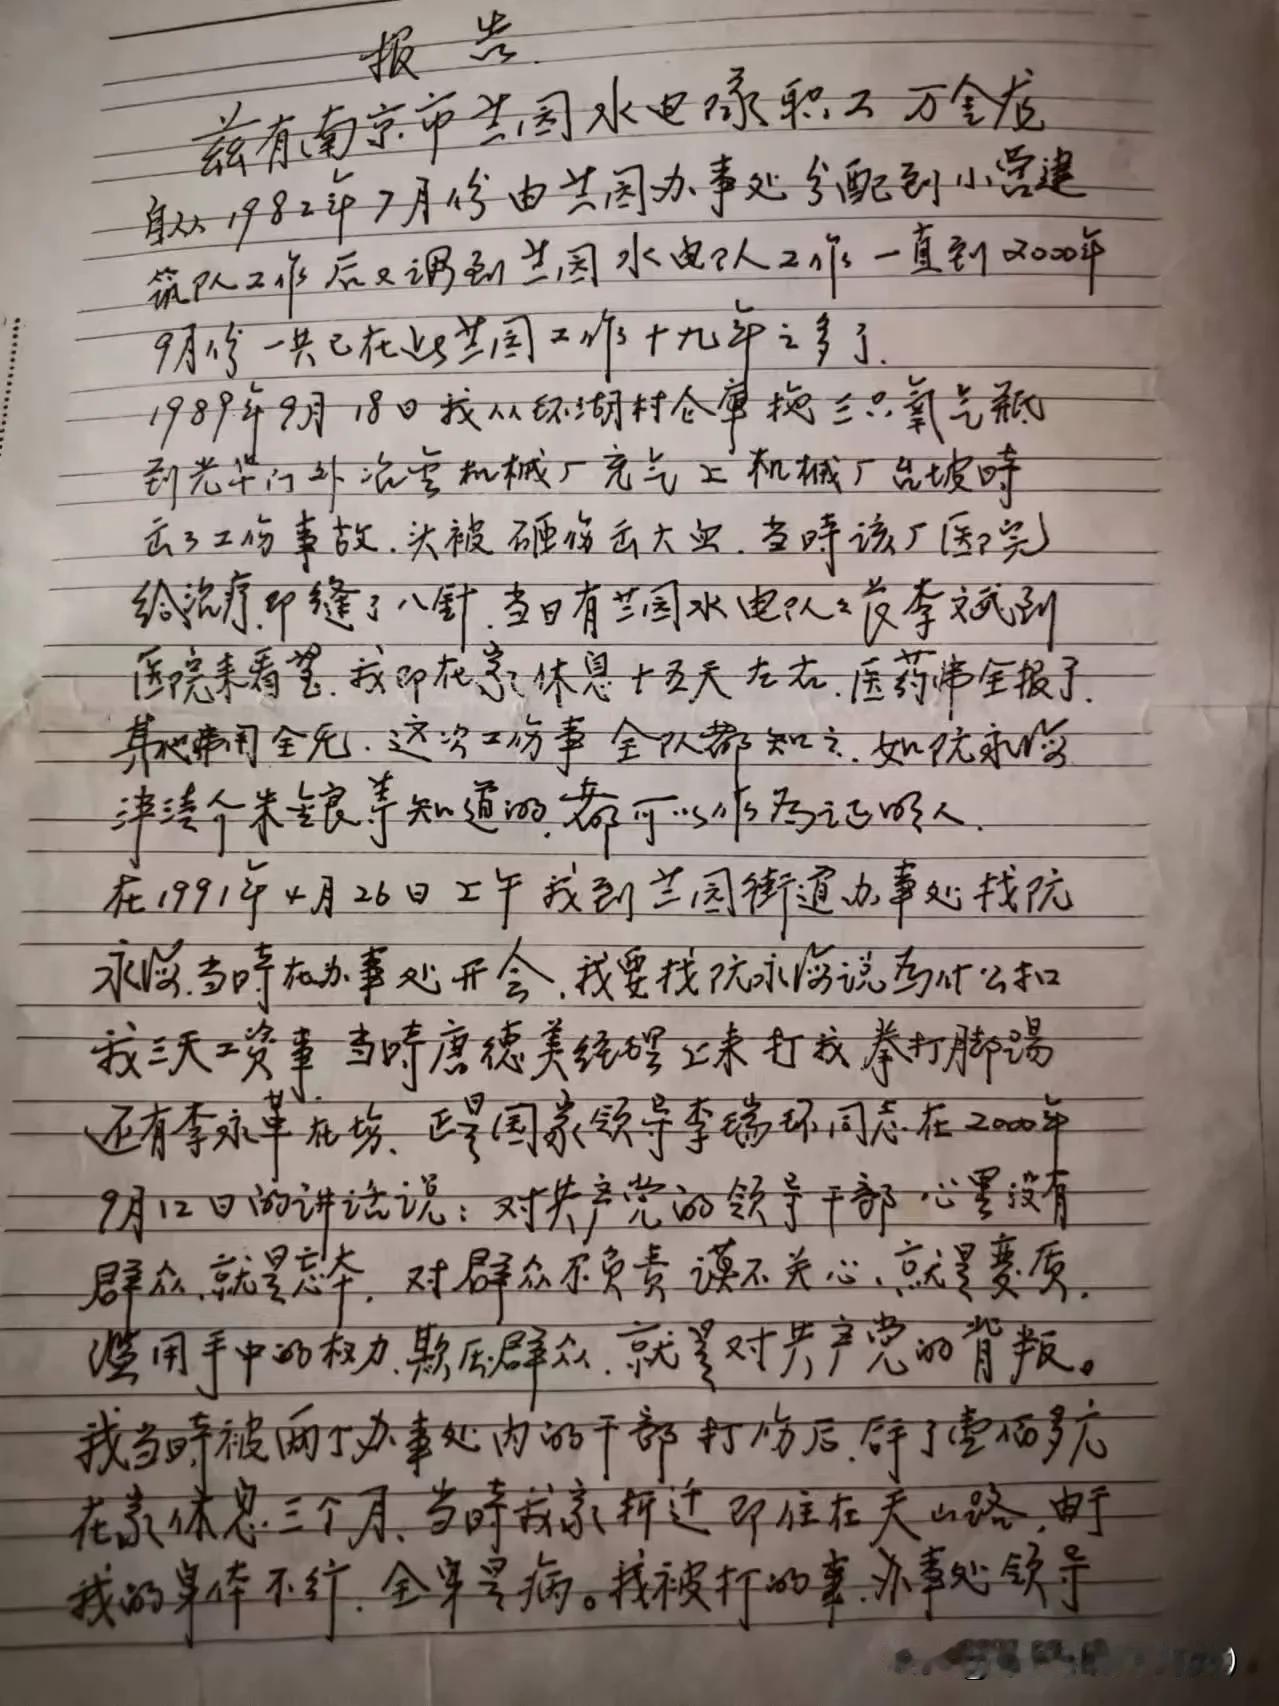 报告.
兹有南京市兰园水电隊职工万金龙
自从1982年7月份由兰园办事处分配到小营建
筑队工作后又调到兰园水电队工作一直到2000年
9月份一共已在此兰园工作十九年之多了.
1989年9月18日我从环湖村仓库拖三只氧气瓶
到光华门外冶金机械厂充气上机械厂台坡時
出了工伤事故.头被砸伤出大血.当時该厂医院
给治疗.即缝了八针.当日有兰园水电队李文武到
医院来看望.我即在家休息十五天左右.医药费全报了.
其他费用全无.这次工伤事全队都知之.如阮永海
朱金良等知道的.都可以作为证明人.
在1991年4月26日上午我到兰园街道办事处找阮
永海.当時在办事处开会.我要找阮永海说为什么扣
我三天工资事.当時庹德美经理上来打我拳打脚踢
还有李永革在场.正是国家领导李瑞环同志在2000年
9月12日的讲话说：对共产党的领导干部心里没有
群众.就是忘本.对群众不负责谟不关心、就是变质.
滥用手中的权力.欺压群众.就是对共产党的背叛。
我当時被两个办事处内的干部打伤后.用了壹佰多元
在家休息三个月、当時我家拆迁即住在天山路.由于
我的身体不行.全身是病。我被打的事.办事处领导